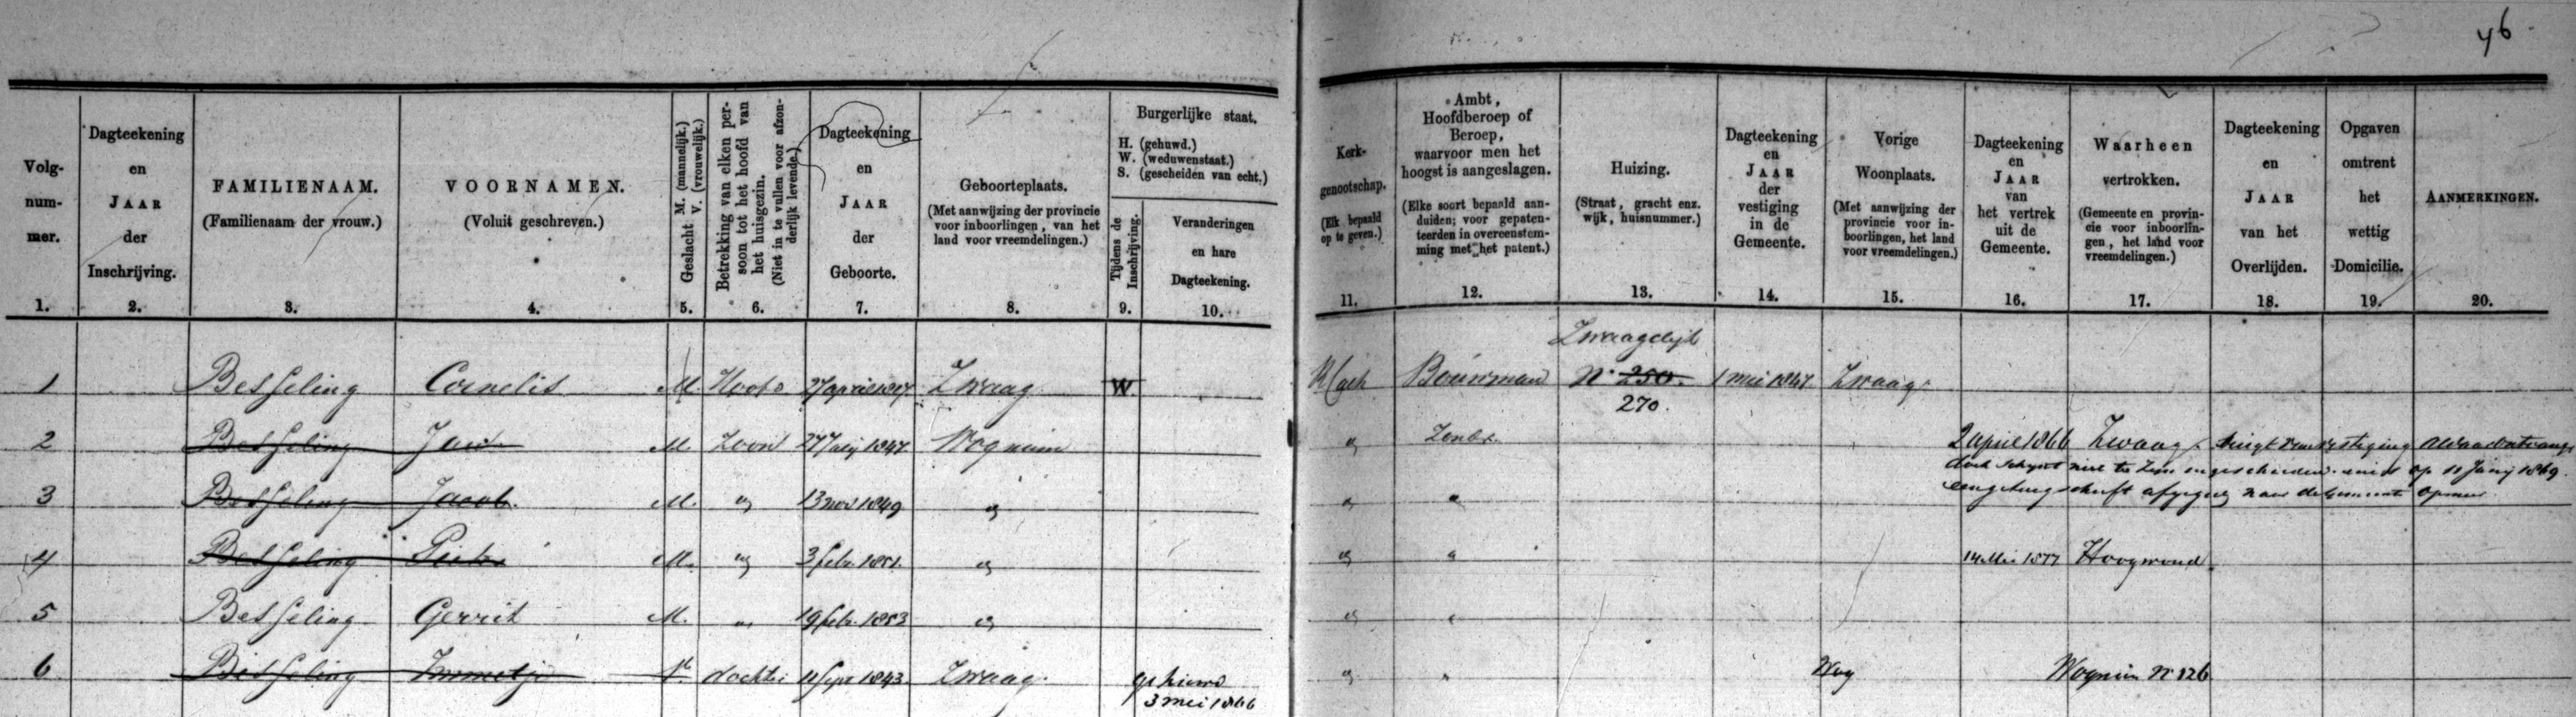 46
Volg-
num-
mer.
1.
Dagteekening
en
JAAR
der
Inschrijving.
2.
FAMILIENAAM.
(Familienaam der vrouw.)
3.
VOORNAMEN.
(Voluit geschreven.)
4.
Geslacht M. (mannelijk.)
V. (vrouwelijk.)
5.
Betrekking van elken per-
soon tot het hoofd van
het huisgezin.
(Niet in te vullen voor afzon-
derlijk levende.)
6.
Dagteekening
en
JAAR
der
Geboorte.
7.
Geboorteplaats.
(Met aanwijzing der provincie
voor inboorlingen, van het
land voor vreemdelingen.)
8.
Burgerlijke staat.
H. (gehuwd.)
W. (weduwenstaat.)
S. (gescheiden van echt.)
Tijdens de
Inschrijving.
9.
Veranderingen
en hare
Dagteekening.
10.
Kerk-
genootschap.
(Elk bepaald
op te geven.)
11.
Ambt,
Hoofdberoep of
Beroep,
waarvoor men het
hoogst is aangeslagen.
(Elke soort bepaald aan-
duiden; voor gepaten-
teerden in overeenstem-
ming met het patent.)
12.
Huizing.
(Straat, gracht enz.
wijk, huisnummer.)
13.
Dagteekening
en
JAAR
der
vestiging
in de
Gemeente.
14.
Vorige
Woonplaats.
(Met aanwijzing der
provincie voor in-
boorlingen, het land
voor vreemdelingen.)
15.
Dagteekening
en
JAAR
van
het vertrek
uit de
Gemeente.
16.
Waarheen
vertrokken.
(Gemeente en provin-
cie voor inboorlin-
gen, het land voor
vreemdelingen.)
17.
Dagteekening
en
JAAR
van het
Overlijden.
18.
Opgaven
omtrent
het
wettig
Domicilie.
19.
AANMERKINGEN.
20.
Zwaagdijk
1 Besseling Cornelis M. Hoofd 27 april 1817 Zwaag W Bouwman N. 250. 1 mei 1847 Zwaag
270.
2 Besseling Jan M. Zoon 27 July 1847 Wognum Zonder 2 april 1866 Zwaag
3 Besseling Jacob. M. " 13 nov 1849 " " "
4 Besseling Pieter M. " 3 febr. 1851 " " " 14 Mei 1877 Hoogwoud
5 Besseling Gerrit M. " 19 febr. 1853 " " "
6 Besseling Immetje V. dochter 11 Sept 1843 Zwaag. gehuwd " " Wog Wognum N 126
3 mei 1866